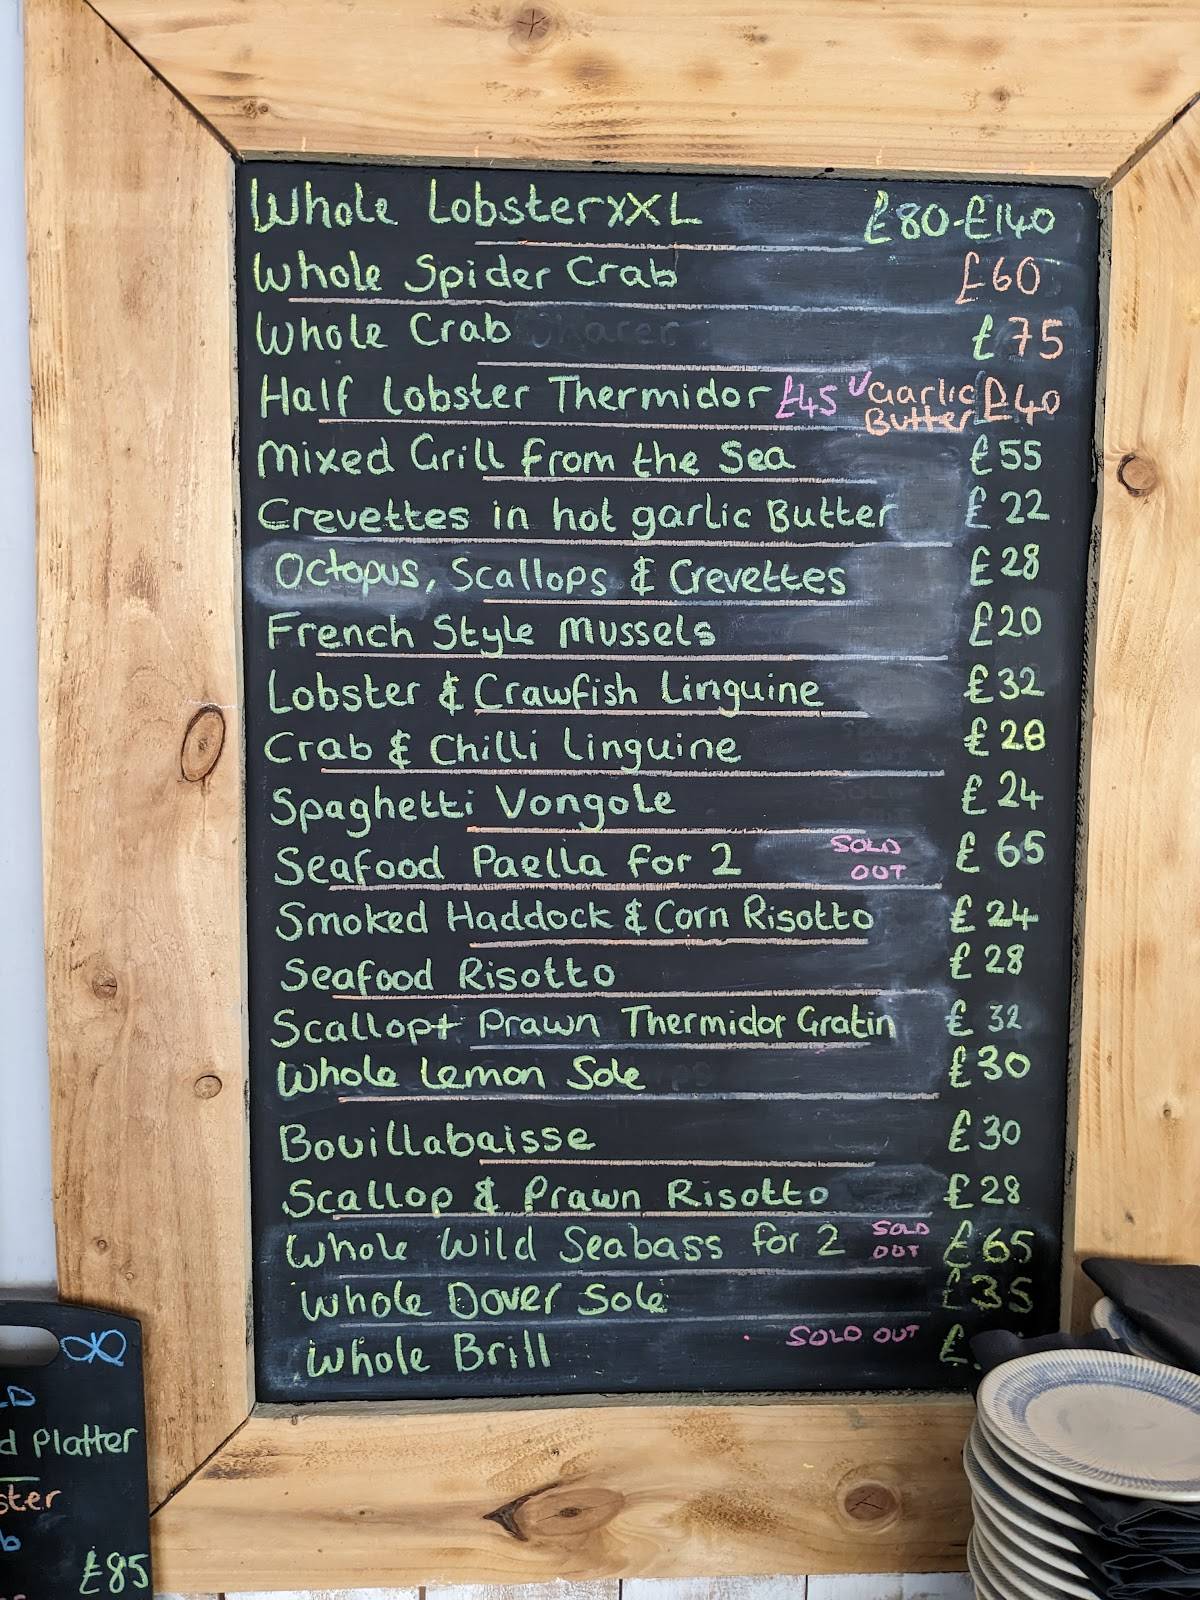 Whole LobsterXXL £80-£140
Whole Spider Crab £60
Whole Crab £75
Half Lobster Thermidor £45 Garlic Butter £40
Mixed Grill from the Sea £55
Crevettes in hot garlic Butter £22
Octopus, Scallops & Crevettes £28
French Style Mussels £20
Lobster & Crawfish Linguine £32
Crab & Chilli Linguine £28
Spaghetti Vongole £24
Seafood Paella for 2 SOLD OUT £65
Smoked Haddock & Corn Risotto £24
Seafood Risotto £28
Scallop+ Prawn Thermidor Gratin £32
Whole Lemon Sole £30
Bouillabaisse £30
Scallop & Prawn Risotto £28
Whole Wild Seabass for 2 SOLD OUT £65
Whole Dover Sole £35
Whole Brill SOLD OUT £
LD
d Platter
ster
b
£85